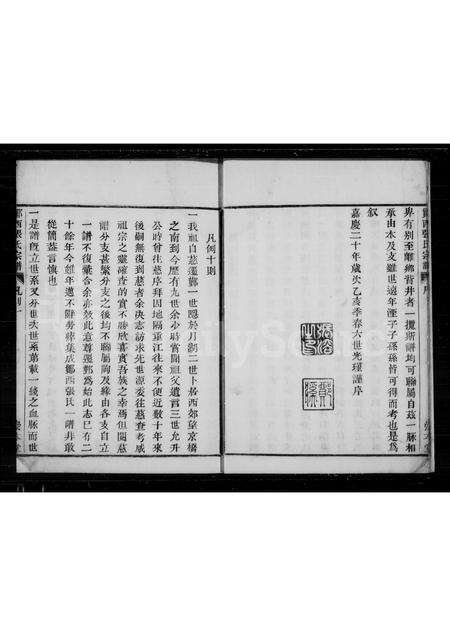 卑有別至離鄉背井者一攬斯譜均可聯屬自茲一脈相
承由本及支雖世遠年湮子子孫孫皆可得而考也是爲
叙
嘉慶二十年歲次乙亥季春六世光瑾謹序
凡例十則
一我祖自慈遷鄞一世隱於月湖二世卜居西郊望京橋
之南到今歷有九世余少時嘗聞祖父遺言三世允升
公時曾往慈序拜因地隔重江往來不便近數十年來
後嗣無復到慈者余決志訪求先世源委往慈查考咸
祖宗之靈確查的實不勝欣喜實吾族之幸焉但開慈
譜分支甚繁分支之後均不聯屬詢及緣由各支自立
一譜不復彙合余亦效此意尊遷鄞爲始此志已有二
十餘年今雖年邁不辭勞瘁集成鄞西張氏一譜非敢
從簡蓋言慎也
一是譜旣立世系又分世次世系第載一綫之血脈而世
鄞西張氏宗譜
凡例
一
鄞西張氏宗譜
序